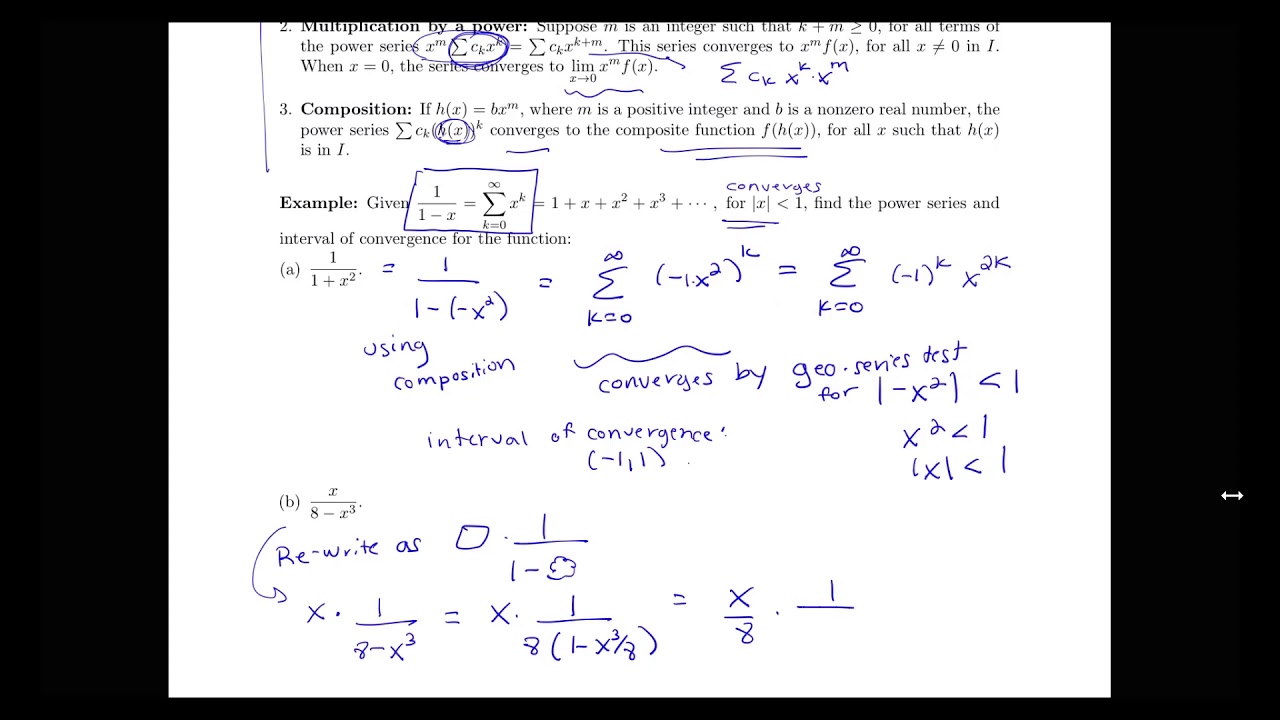 2. Multiplication by a power: Suppose m is an integer such that k + m ≥ 0, for all terms of
the power series x^m ∑ c_k x^k = ∑ c_k x^{k+m}. This series converges to x^m f(x), for all x ≠ 0 in I.
When x = 0, the series converges to lim_{x→0} x^m f(x).
∑ c_k x^k · x^m
3. Composition: If h(x) = bx^m, where m is a positive integer and b is a nonzero real number, the
power series ∑ c_k (h(x))^k converges to the composite function f(h(x)), for all x such that h(x)
is in I.
converges
Example: Given 1/(1 − x) = ∑_{k=0}^{∞} x^k = 1 + x + x^2 + x^3 + ⋯ , for |x| < 1, find the power series and
interval of convergence for the function:
(a) 1/(1 + x^2). = 1/(1 - (-x^2)) = ∑_{k=0}^{∞} (-1·x^2)^k = ∑_{k=0}^{∞} (-1)^k x^{2k}
using
composition
converges by geo. series test
for |-x^2| < 1
interval of convergence:
(-1,1)
x^2 < 1
|x| < 1
(b) x/(8 − x^3).
Re-write as □ · 1/(1 - ☁)
x · 1/(8-x^3) = x · 1/(8(1-x^3/8)) = x/8 · 1/